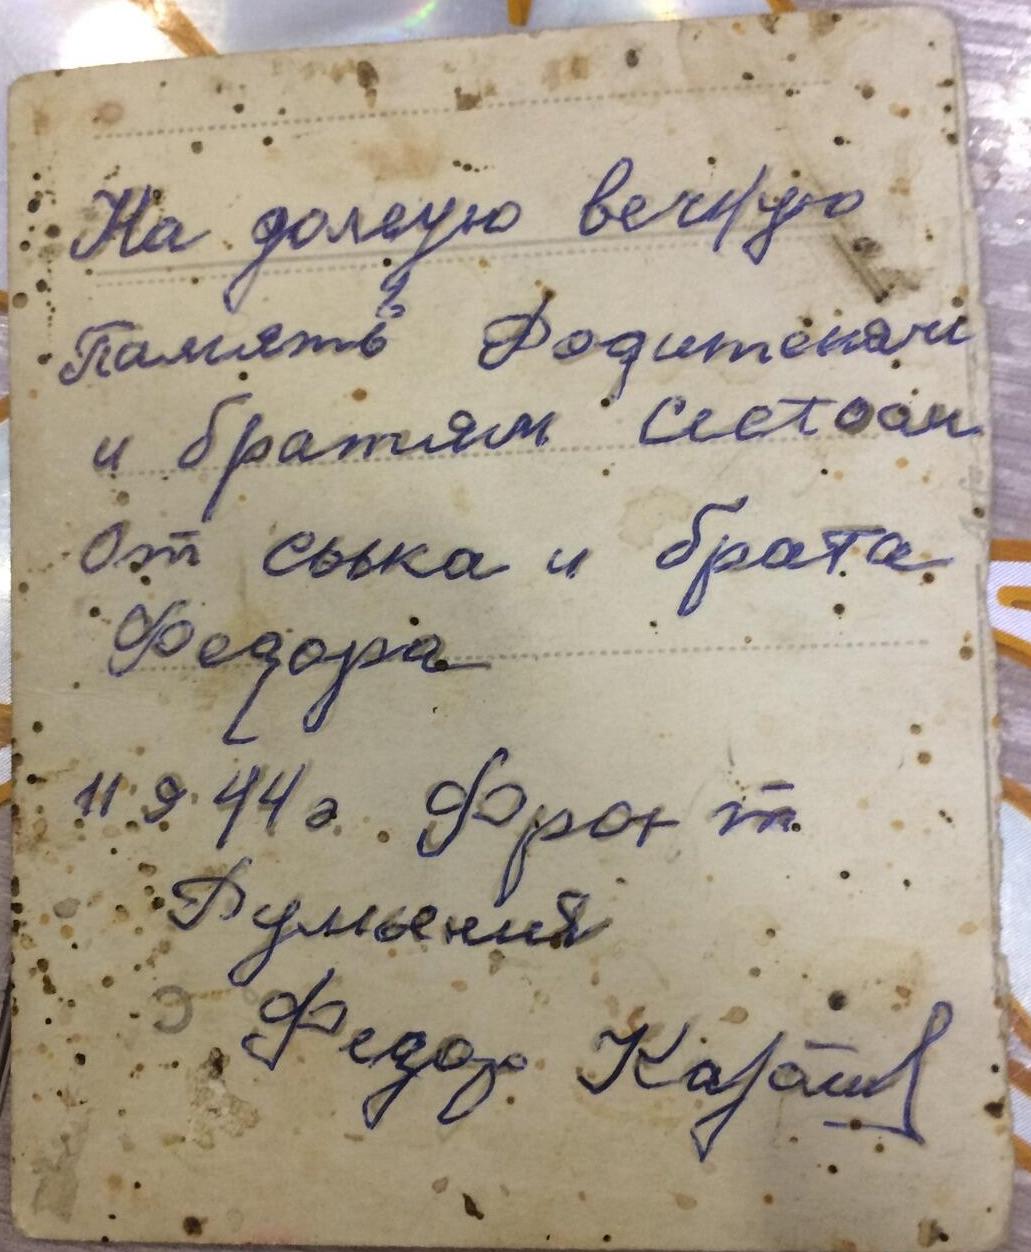 На долгую вечную
Память Родителям
и братьям Сестрам
От сына и брата
Федора
11 9 44 г. Фронт
Румыния
Федор